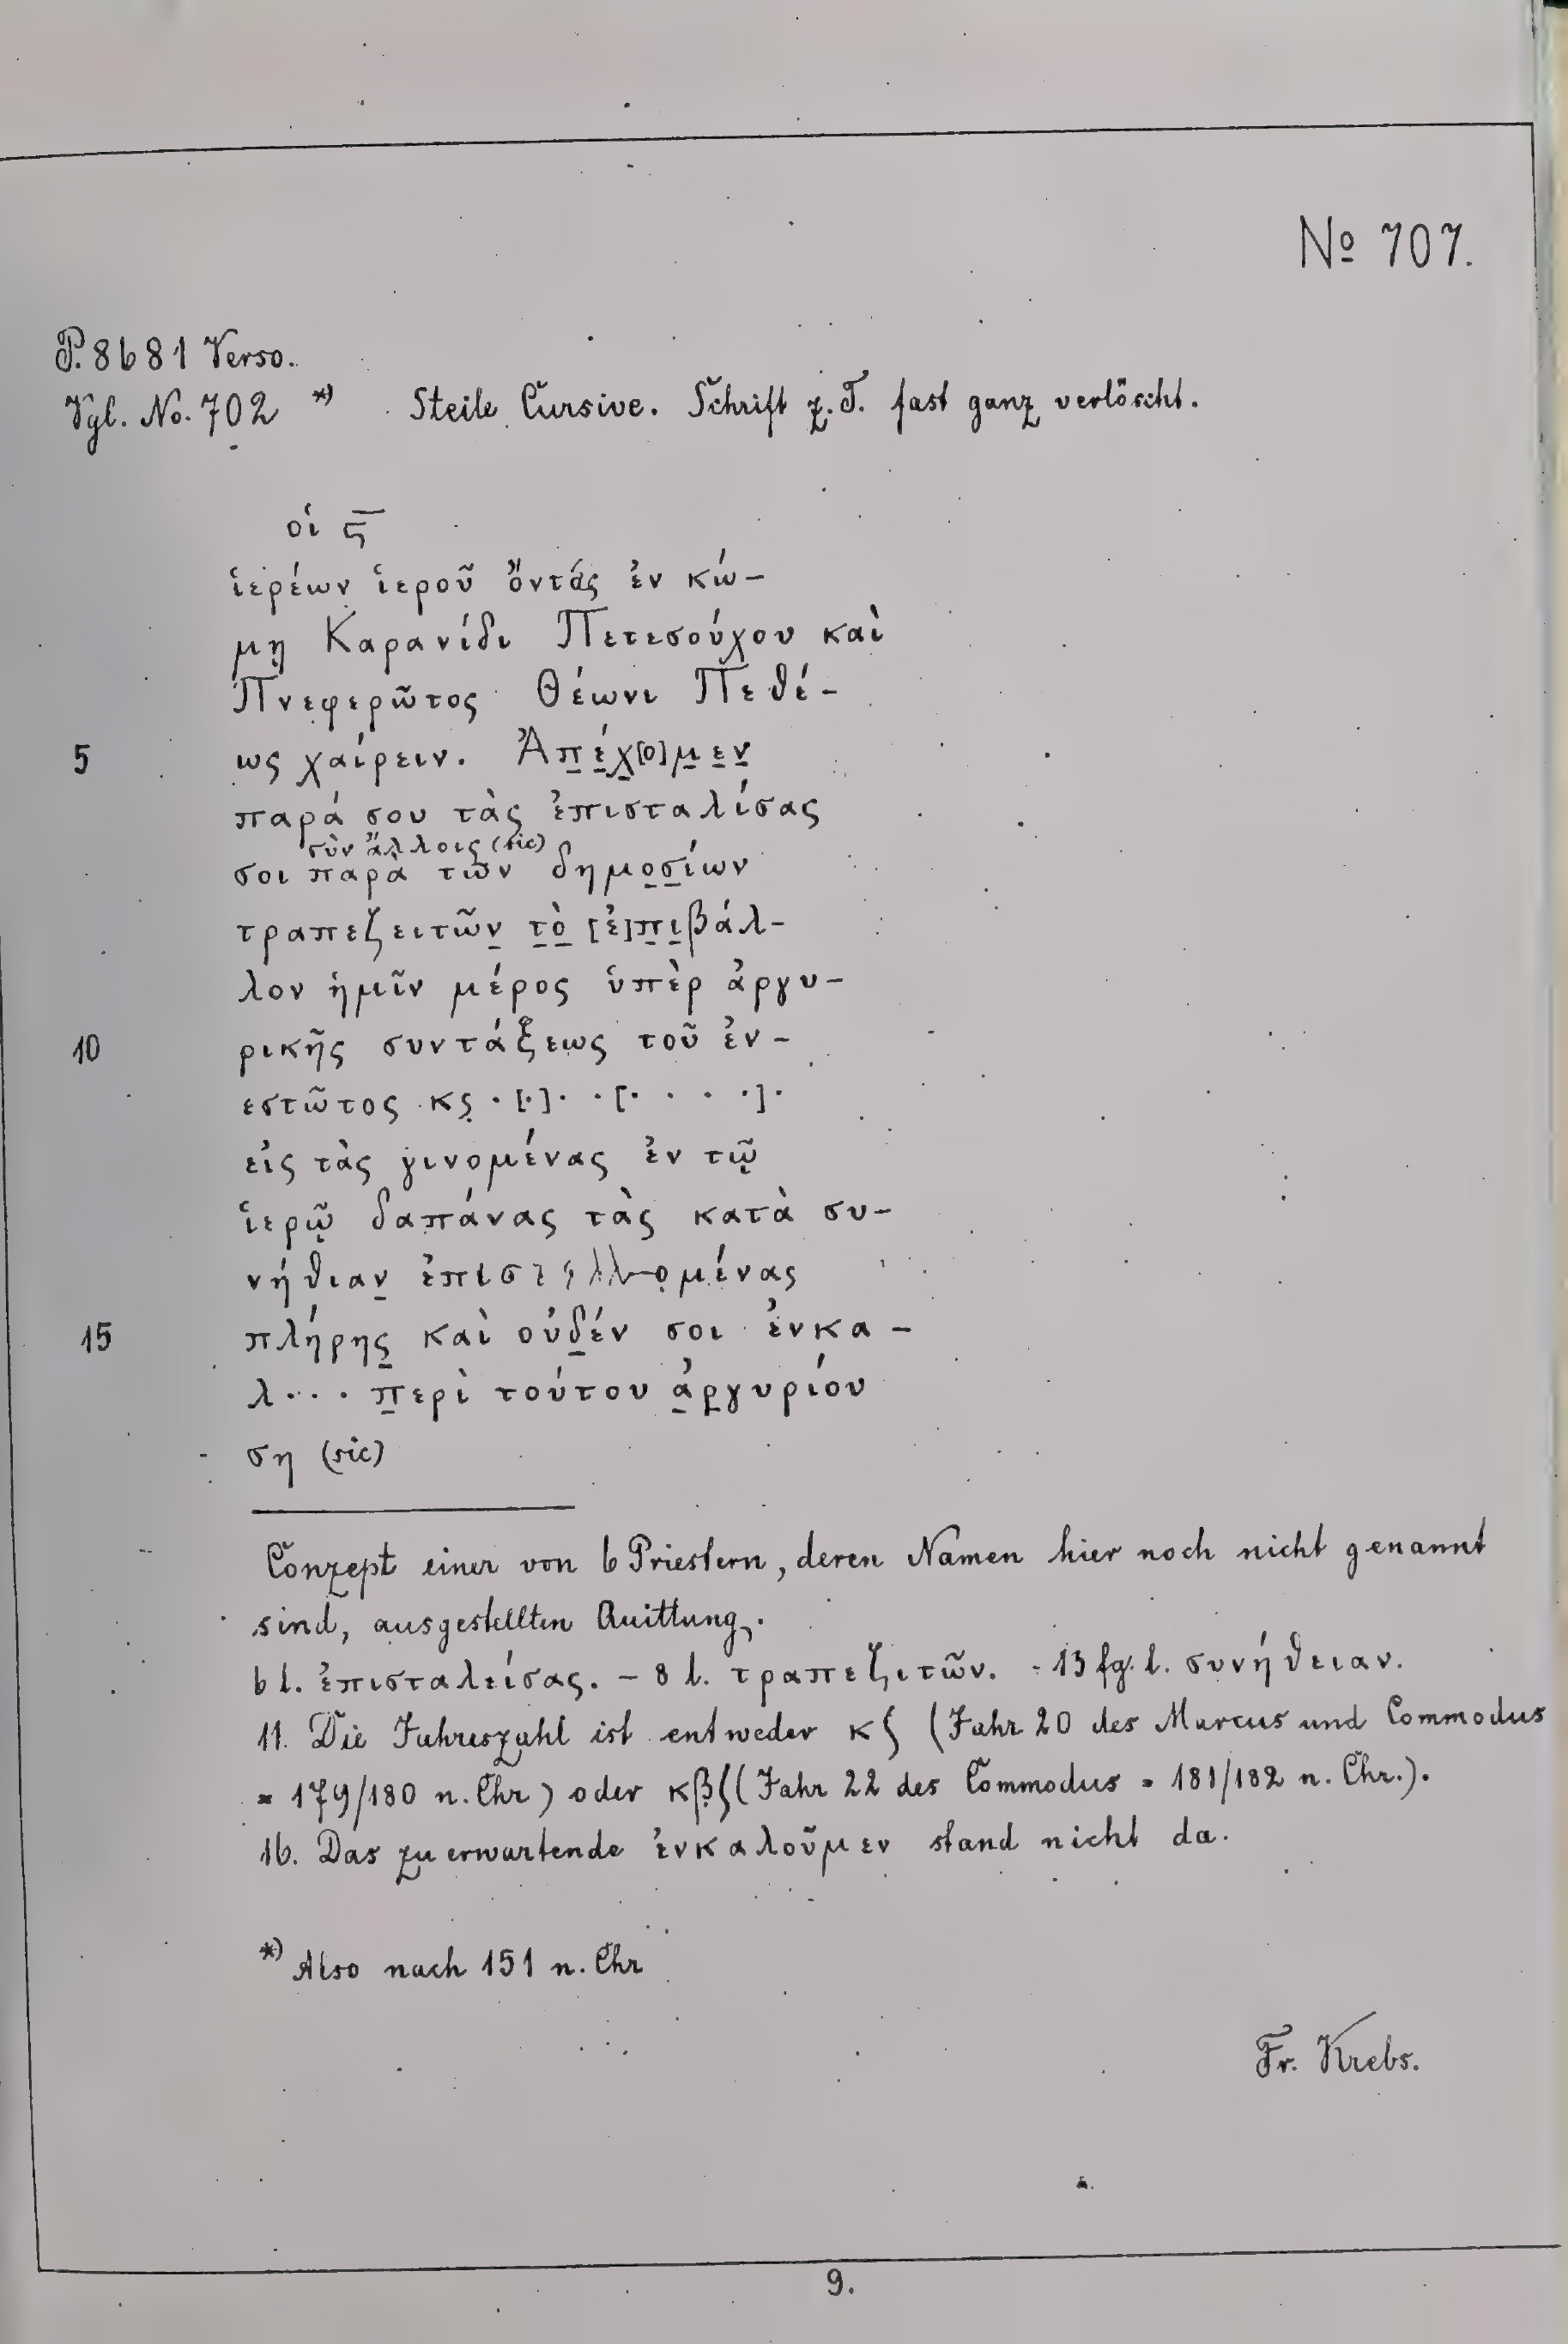 No 707.
P. 8681 Verso.
Vgl. No. 702 *) Steile Cursive. Schrift z. T. fast ganz verlöscht.
οἱ ϛ̅
ἱερέων ἱεροῦ ὄντάς ἐν κώ-
μη Καρανίδι Πετεσούχου καὶ
Πνεφερῶτος Θέωνι Πεθέ-
5 ως χαίρειν. Ἀπ̣έ̣χ̣[ο]μ̣ε̣ν̣
παρά σου τὰς ἐπισταλίσας
σὺν ἄλλοις (sic)
σοι παρὰ τῶν δημο̣σ̣ίων
τραπεζειτῶν̣ τ̣ὸ̣ [ἐ]π̣ι̣βάλ-
λον ἡμῖν μέρος ὑπὲρ ἀργυ-
10 ρικῆς συντάξεως τοῦ ἐν-
εστῶτος κϛ̣ . [.] . . [. . . .] .
εἰς τὰς γινομένας ἐν τῷ
ἱερῷ δαπάνας τὰς κατὰ συ-
νήθιαν̣ ἐπιστελλομένας
15 πλήρης̣ καὶ οὐδ̣έν σοι ἐνκα-
λ . . . π̣ερὶ τούτου ἀ̣ρ̣γυρίου
ση (sic)
Conzept einer von 6 Priestern, deren Namen hier noch nicht genannt
sind, ausgestellten Quittung.
6 l. ἐπισταλείσας. – 8 l. τραπεζιτῶν. - 13 fg. l. συνήθειαν.
11. Die Jahreszahl ist entweder κ ʃ (Jahr 20 des Marcus und Commodus
= 179/180 n. Chr) oder κβ̣ʃ (Jahr 22 des Commodus = 181/182 n. Chr.).
16. Das zu erwartende ἐνκαλοῦμεν stand nicht da.
*) Also nach 151 n. Chr
Fr. Krebs.
9.